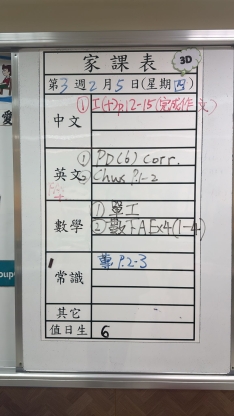 家課表
3D
第3週2月5日(星期四)
中文
① 工(十)p.12-15(完成作文)
英文
① PD(6) Corr.
② Chus P.1-2
數學
① 單工
② 數下A Ex4(1-4)
常識
P.2-3
其它
值日生 6
愛
oup